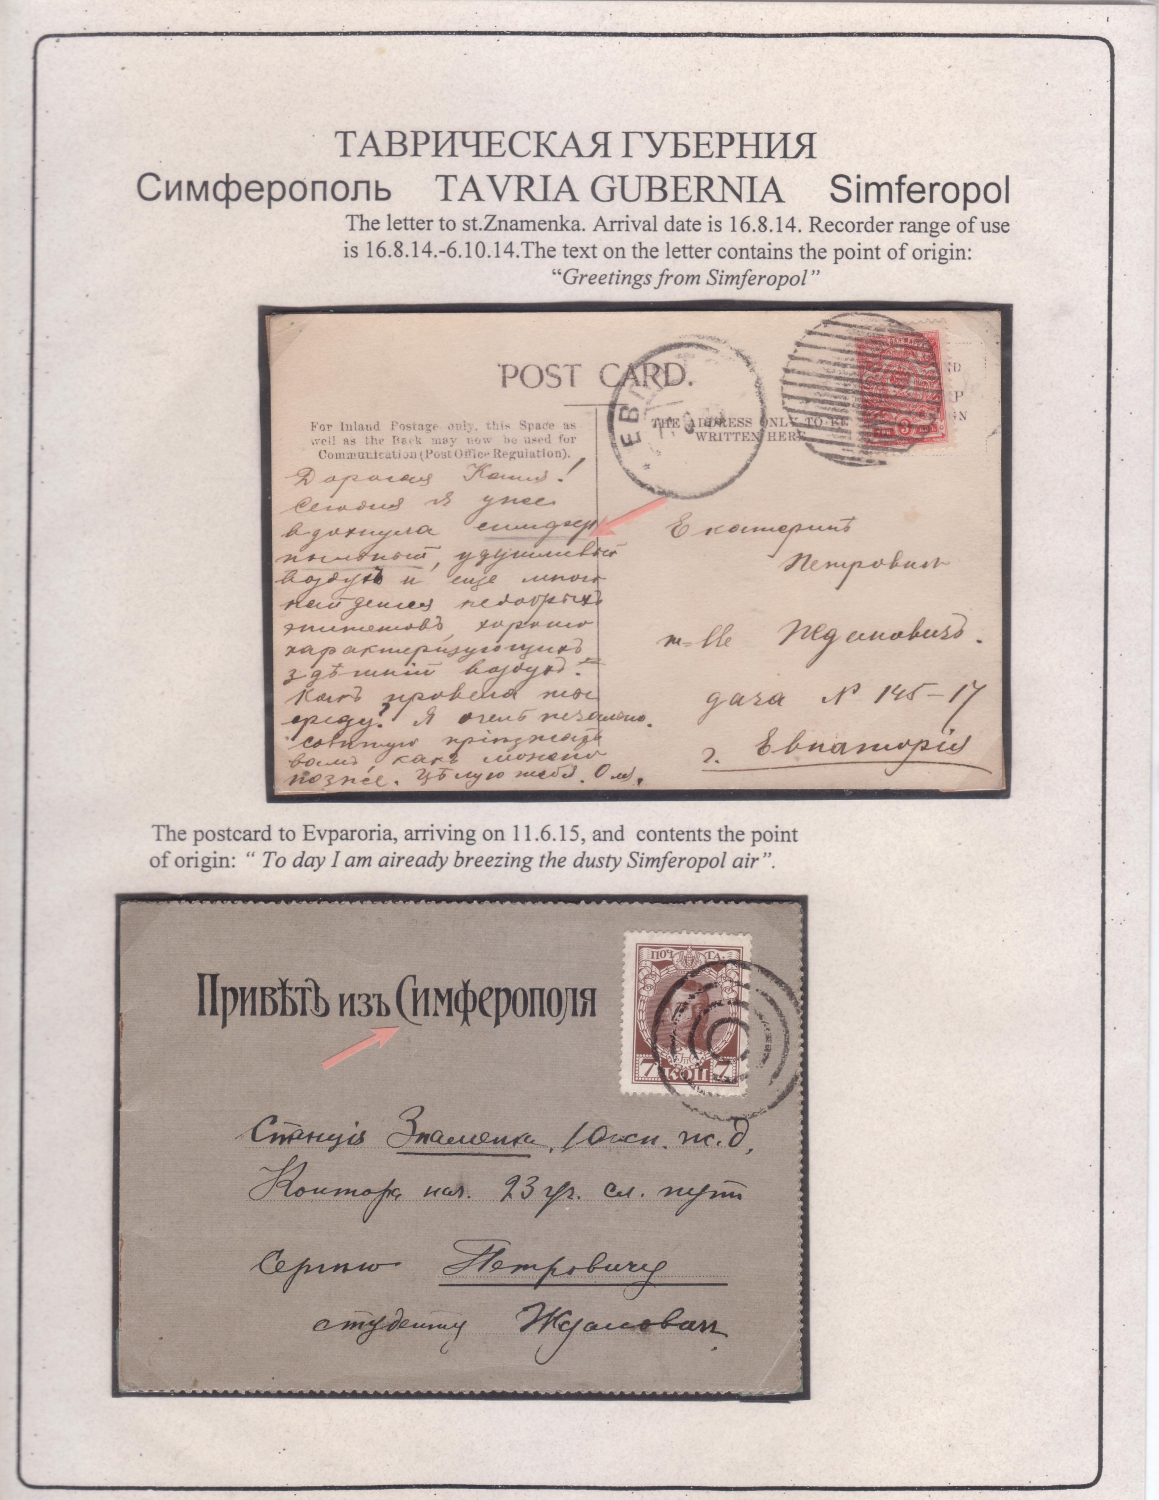 ТАВРИЧЕСКАЯ ГУБЕРНИЯ
Симферополь TAVRIA GUBERNIA Simferopol
The letter to st.Znamenka. Arrival date is 16.8.14. Recorder range of use
is 16.8.14.-6.10.14.The text on the letter contains the point of origin:
“Greetings from Simferopol”
POST CARD.
For Inland Postage only, this Space as
well as the Back may now be used for
Communication (Post Office Regulation).
THE ADDRESS ONLY TO BE
WRITTEN HERE
Дорогая Катя!
Сегодня я уже
вдохнула симфер
пыльный, удушливый
воздухъ и еще много
недобрыхъ
эпитетовъ, хорошо
характеризующихъ
здѣшній воздухъ.
Какъ провела ты
среду? Я очень
совѣтую пріѣзжать
вамъ какъ можно
позже. Цѣлую тебя. Оля.
Екатеринѣ
Петровнѣ
m-lle Ждановичъ.
дача № 145-17
г. Евпаторія
The postcard to Evparoria, arriving on 11.6.15, and contents the point
of origin: “ To day I am airedy breezing the dusty Simferopol air”.
Привѣтъ изъ Симферополя
ПОЧТА.
7 КОП 7
Станція Знаменка, Южн. ж.д.
Контора нач. 23 уч. сл. пути
Сергѣю Петровичу
студенту Ждановичу